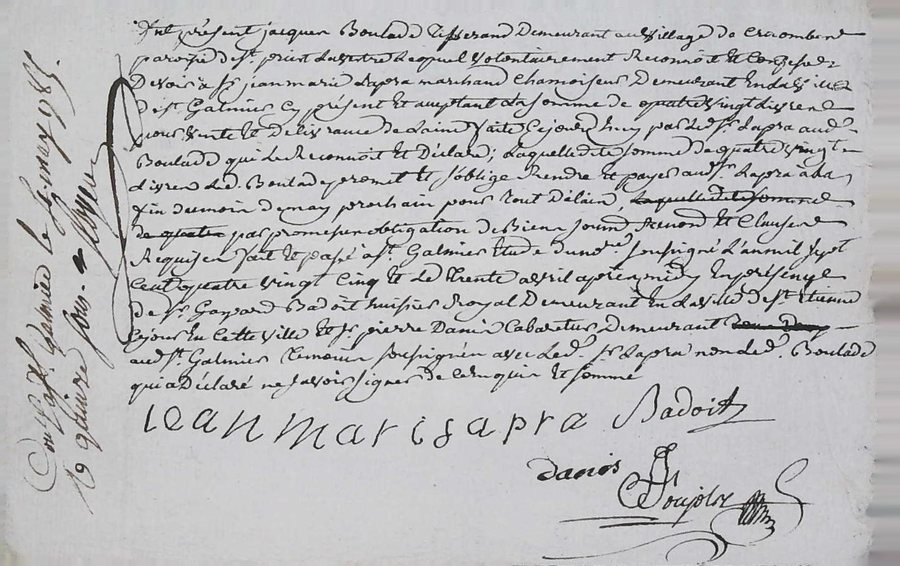 fut présent jacques Boulade tisserand Demeurant au village de
paroisse de st. priest Lequel volontairement Reconnoit et Confesse
Devoir à sr. jean marie Lapra marchand Chamoiseur Demeurant En la ville
de st. Galmier Cy présent et acceptant La somme de quatre vingt Livres
pour vente et Delivrance de Laine faite Cejourd'huy par Led. sr. Lapra aud.
Boulade qui Le Reconnoit et Déclare; Laquelle dite somme de quatre vingt
Livres Led. Boulade promet et s'oblige Rendre et payer aud. sr. Lapra a la
fin du mois de may prochain pour tout Délain, Laquelle dite somme
de quatre par promesse obligation de Biens soumis Renon et Clauses
Requises fait et passé a st. Galmier Etude du nore. soussigné L'an mil sept
Cent quatre vingt Cinq et Le trente avril après midy En présence
de sr. Gaspard Badoit huissier Royal Demeurant En La ville de st. Etienne
Cejour en Cette ville et sr. pierre Danis Cabaretier Demeurant
aud. st. Galmier témoins soussignés avec Led. sr. Lapra non Led. Boulade
qui a Déclaré ne savoir signer de Ce enquis et sommé
jean mari Lapra Badoit
danis
Poujolz
Con. a st. Galmier le may 1785.
Rs quinze sous